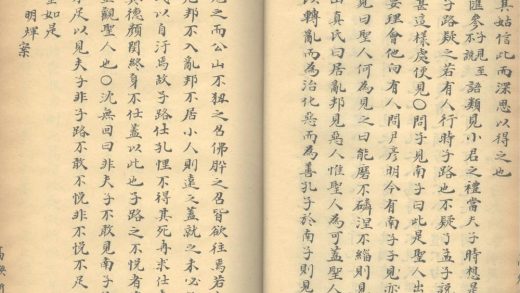 其姑信此而深思以得之也
匯參子見至不說 語類見小君之禮當夫子時想是
子路疑之若有人行時子路也不疑了孟子說
甚這樣處便見○問子見南子曰此是聖人出
要理會他向有人問尹彥明今有南子子見亦
見曰聖人何為見之曰能磨不磷涅不緇則見
出真氏曰居亂邦見惡人惟聖人為可蓋聖人
以轉亂而為治化惡而為善孔子於南子則見
見之而公山不狃之召佛肸之召皆欲往焉若
危邦不入亂邦不居小人則遠之蓋就之未必
以自汙焉故子路仕孔悝不得其死冉求仕
其德顏閔終身不仕蓋以此也子路之不悅者
觀聖人也○沈無回曰非夫子不敢見南子
不足以見夫子非子路不敢不悅非不悅不足
聖如是
明輝案